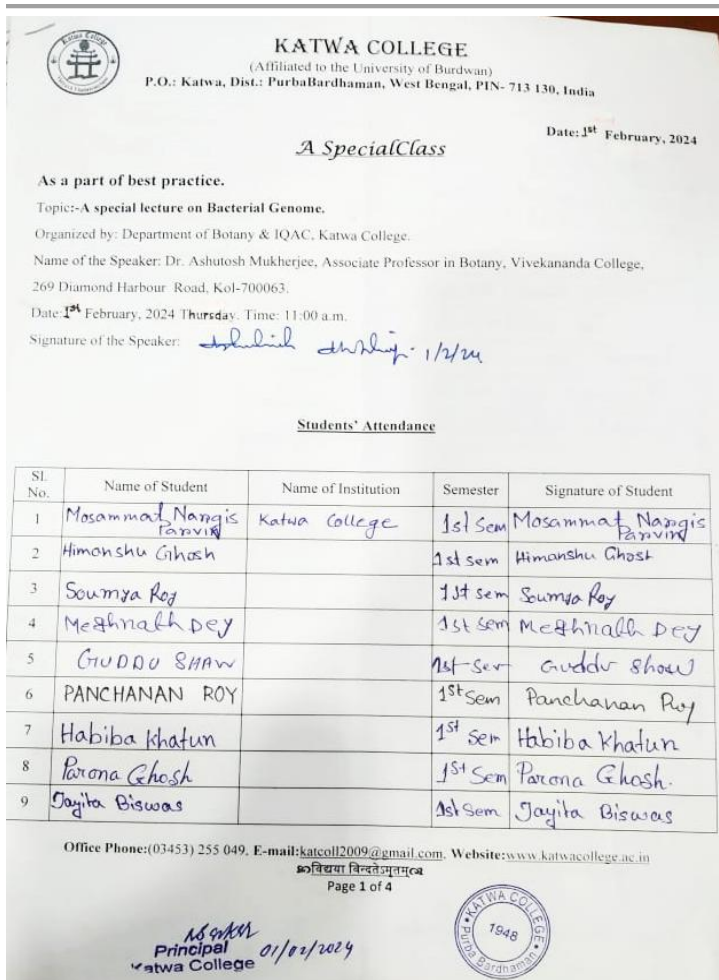 Katwa College
KATWA COLLEGE
(Affiliated to the University of Burdwan)
P.O.: Katwa, Dist.: PurbaBardhaman, West Bengal, PIN- 713 130, India
Date: 1st February, 2024
A SpecialClass
As a part of best practice.
Topic:-A special lecture on Bacterial Genome.
Organized by: Department of Botany & IQAC, Katwa College.
Name of the Speaker: Dr. Ashutosh Mukherjee, Associate Professor in Botany, Vivekananda College,
269 Diamond Harbour Road, Kol-700063.
Date: 1st February, 2024 Thursday. Time: 11:00 a.m.
Signature of the Speaker: 1/2/24
Students' Attendance
Sl. No. Name of Student Name of Institution Semester Signature of Student
1 Mosammat Nargis Parvin Katwa College 1st Sem Mosammat Nargis Parvin
2 Himanshu Ghosh 1st sem Himanshu Ghosh
3 Soumya Roy 1st sem Soumya Roy
4 Meghnath Dey 1st Sem Meghnath Dey
5 GUDDU SHAW 1st Guddu Shaw
6 PANCHANAN ROY 1st Sem Panchanan Roy
7 Habiba Khatun 1st Sem Habiba Khatun
8 Parona Ghosh 1st Sem Parona Ghosh.
9 Jayita Biswas 1st Sem Jayita Biswas
Office Phone:(03453) 255 049, E-mail:katcoll2009@gmail.com, Website:www.katwacollege.ac.in
विद्यया विन्दतेऽमृतम्
Page 1 of 4
Principal 01/02/2024
Katwa College
KATWA COLLEGE
1948
Purba Bardhaman